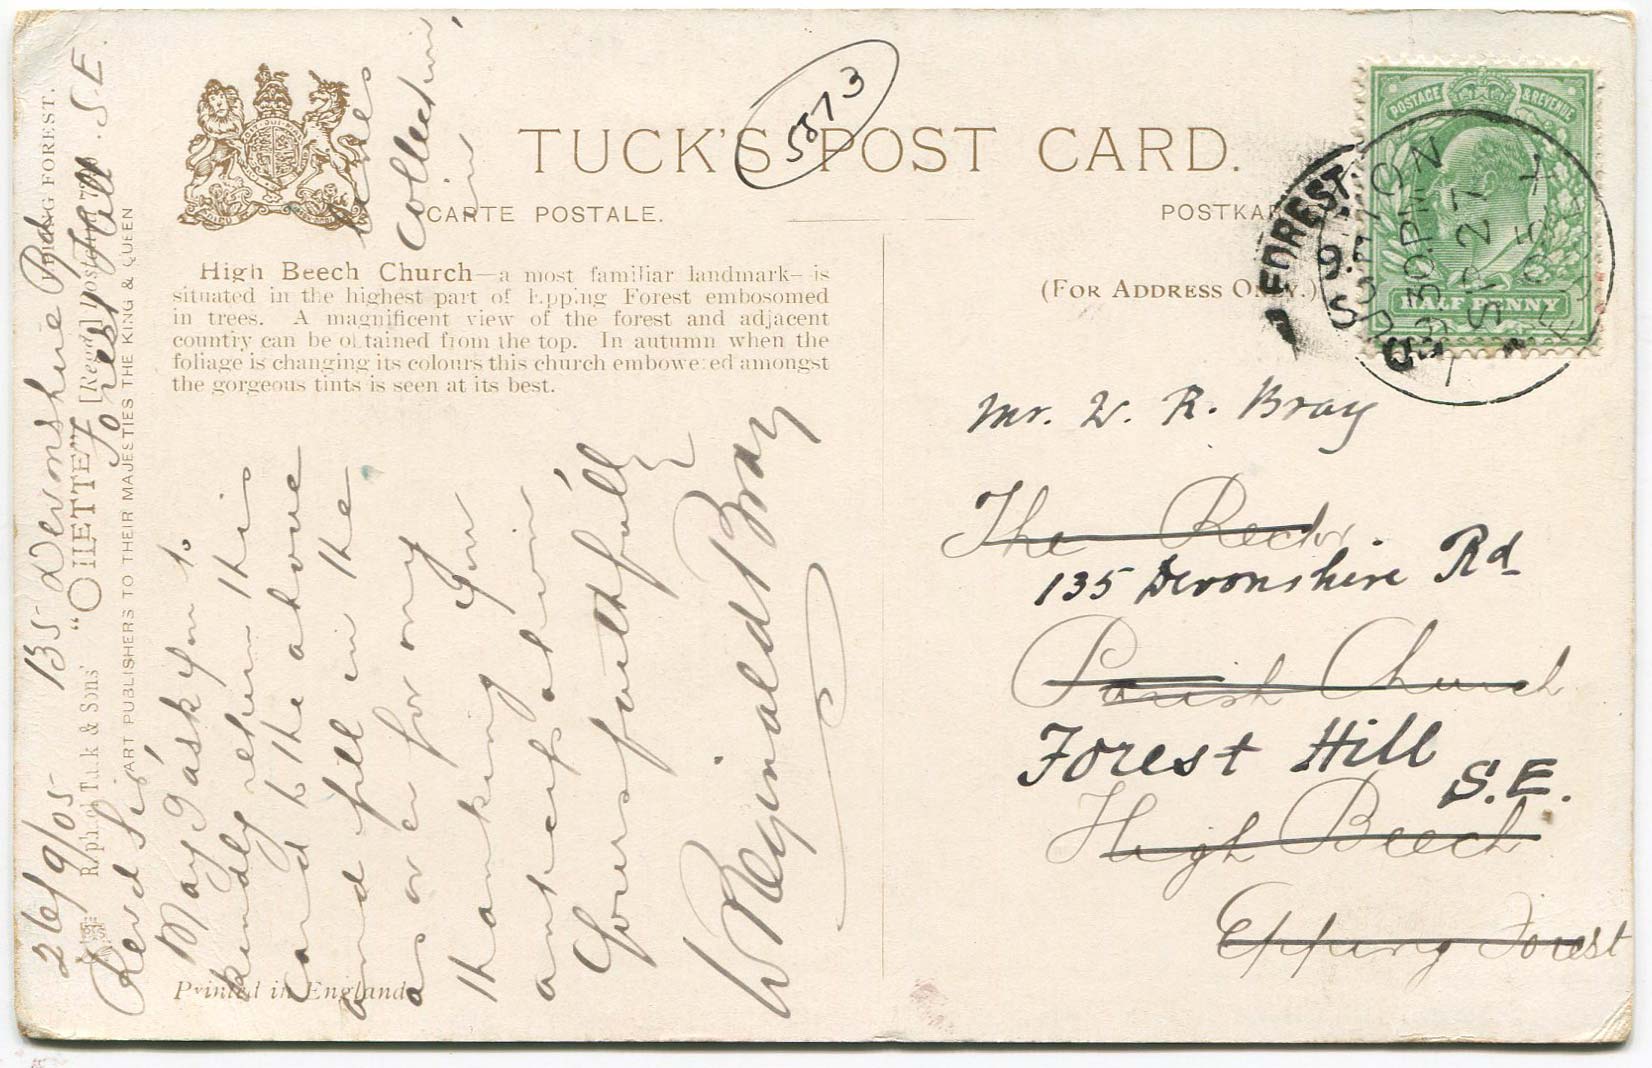 TUCK'S POST CARD.
5873
CARTE POSTALE.
POSTKAR
(FOR ADDRESS ONLY.)
High Beech Church—a most familiar landmark—is
situated in the highest part of Epping Forest embosomed
in trees. A magnificent view of the forest and adjacent
country can be obtained from the top. In autumn when the
foliage is changing its colours this church embowered amongst
the gorgeous tints is seen at its best.
Printed in England
EPPING FOREST.
Raphael Tuck & Sons' "OILETTE" [Regd.] Postcard
ART PUBLISHERS TO THEIR MAJESTIES THE KING & QUEEN
26/9/05 135 Devonshire Rd
Forest Hill. S.E.
Revd Sir
May I ask you to
kindly return this
card to the above
and fill in the
as over for my
collection
thanking you
Yours faithfully
W Reginald Bray
POSTAGE & REVENUE
HALF PENNY
FOREST
SP 27
05
Mr. W. R. Bray
The Rector.
135 Devonshire Rd
Parish Church
Forest Hill
S.E.
High Beech
Epping Forest